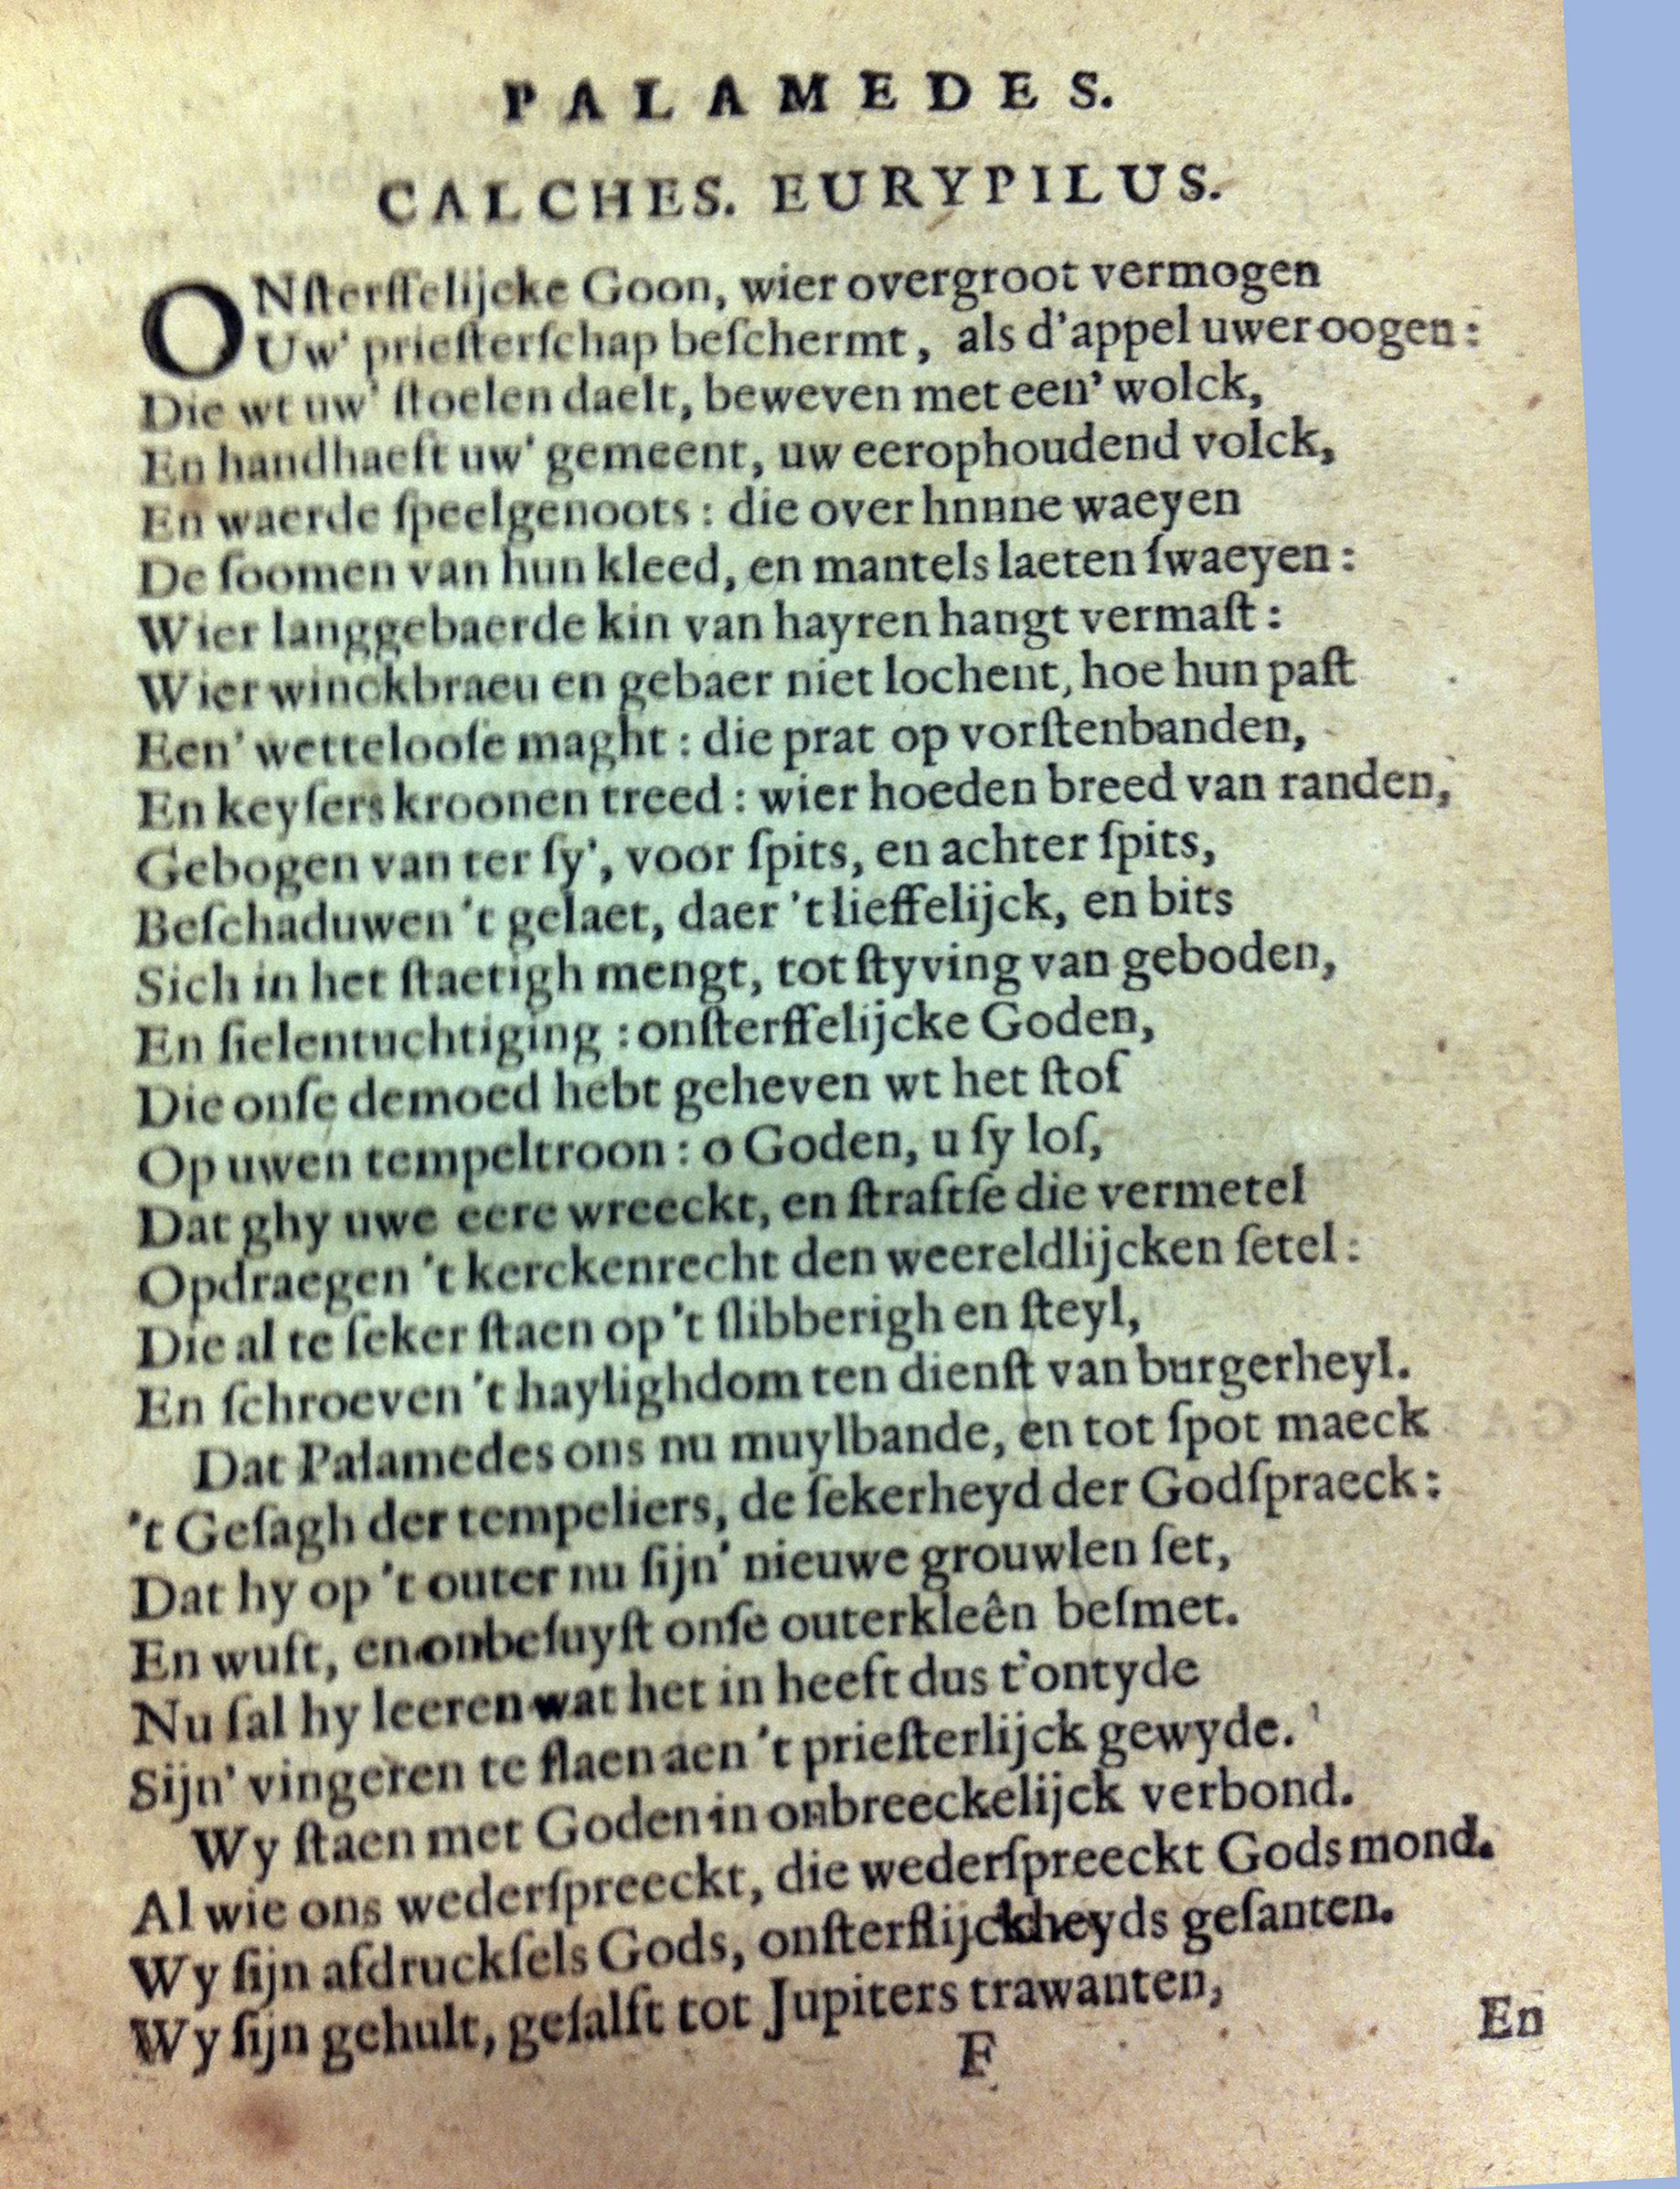 PALAMEDES.
CALCHES. EURYPILUS.
ONſterffelijcke Goon, wier overgroot vermogen
Uw' prieſterſchap beſchermt, als d'appel uwer oogen:
Die wt uw' ſtoelen daelt, beweven met een' wolck,
En handhaeft uw' gemeent, uw eerophoudend volck,
En waerde ſpeelgenoots: die over hnnne waeyen
De ſoomen van hun kleed, en mantels laeten ſwaeyen:
Wier langgebaerde kin van hayren hangt vermaſt:
Wier winckbraeu en gebaer niet lochent, hoe hun paſt
Een' wetteloofe maght: die prat op vorſtenbanden,
En keyſers kroonen treed: wier hoeden breed van randen,
Gebogen van ter ſy', voor ſpits, en achter ſpits,
Beſchaduwen 't gelaet, daer 't lieffelijck, en bits
Sich in het ſtaetigh mengt, tot ſtyving van geboden,
En ſielentuchtiging: onſterffelijcke Goden,
Die onſe demoed hebt geheven wt het ſtof
Op uwen tempeltroon: o Goden, u ſy lof,
Dat ghy uwe eere wreeckt, en ſtraftſe die vermetel
Opdraegen 't kerckenrecht den weereldlijcken ſetel:
Die al te ſeker ſtaen op 't ſlibberigh en ſteyl,
En ſchroeven 't haylighdom ten dienſt van burgerheyl.
Dat Palamedes ons nu muylbande, en tot ſpot maeck
't Geſagh der tempeliers, de ſekerheyd der Godſpraeck:
Dat hy op 't outer nu ſijn' nieuwe grouwlen ſet,
En wuft, en onbeſuyſt onſe outerkleên beſmet.
Nu ſal hy leeren wat het in heeft dus t'ontyde
Sijn' vingeren te ſlaen aen 't prieſterlijck gewyde.
Wy ſtaen met Goden in onbreeckelijck verbond.
Al wie ons wederſpreeckt, die wederſpreeckt Gods mond.
Wy ſijn afdruckſels Gods, onſterflijckheyds geſanten.
Wy ſijn gehult, geſalft tot Jupiters trawanten,
F
En